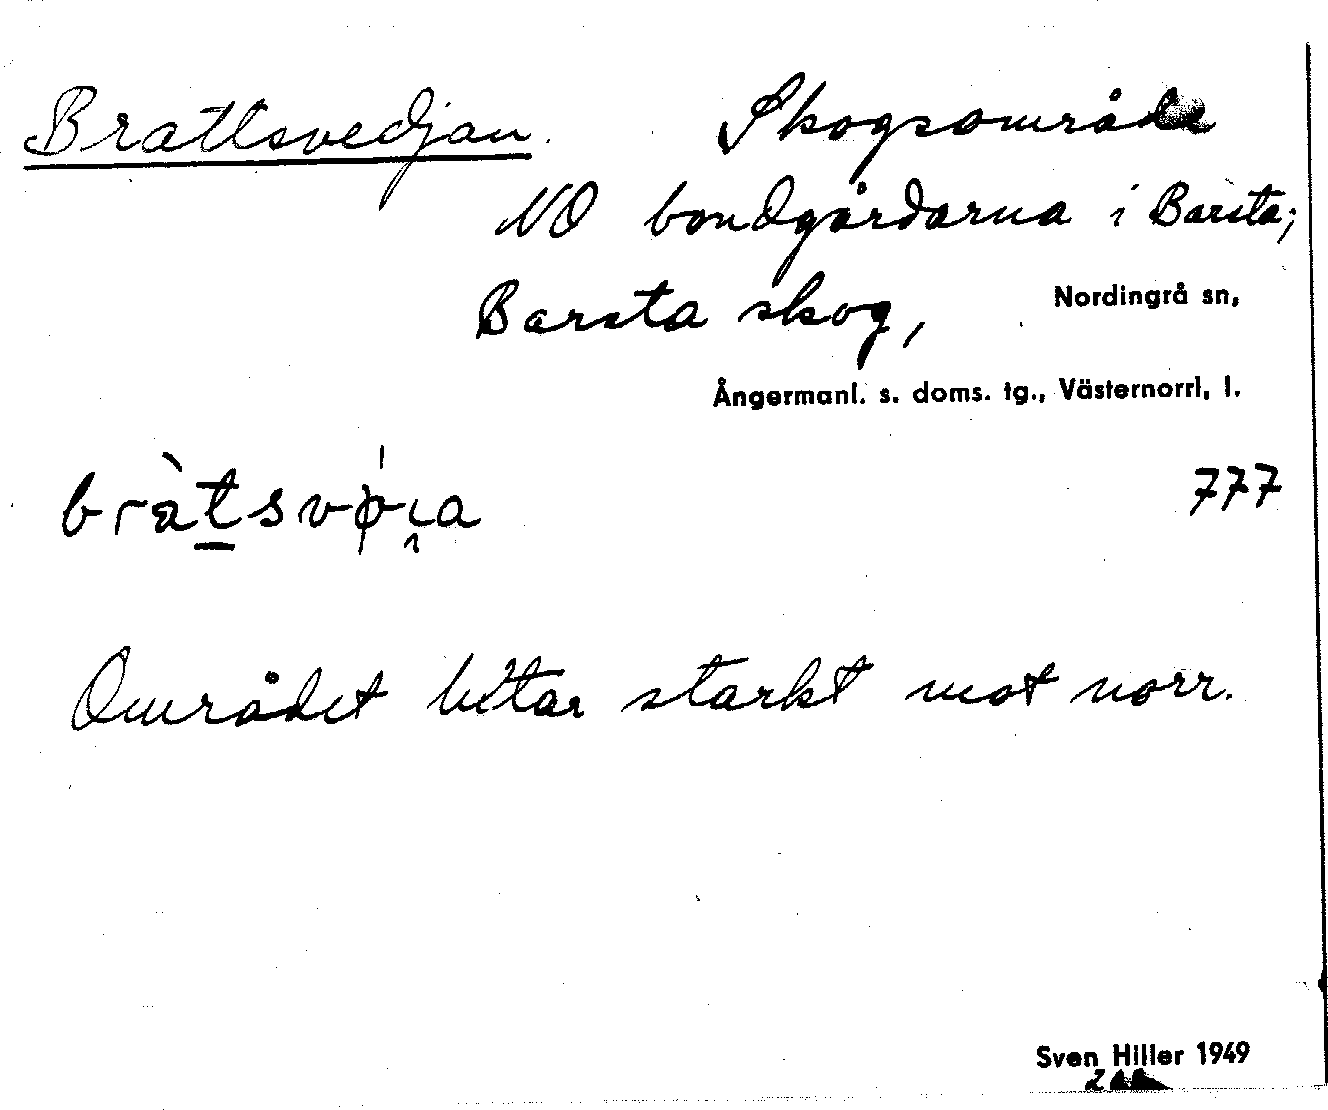 Brattsvedjan. Skogsområde
NO bondgårdarna i Barsta;
Barsta skog, Nordingrå sn,
Ångermanl. s. doms. tg., Västernorrl. l.
bràtsvø̍ı̯a 777
Området lutar starkt mot norr.
Sven Hiller 1949